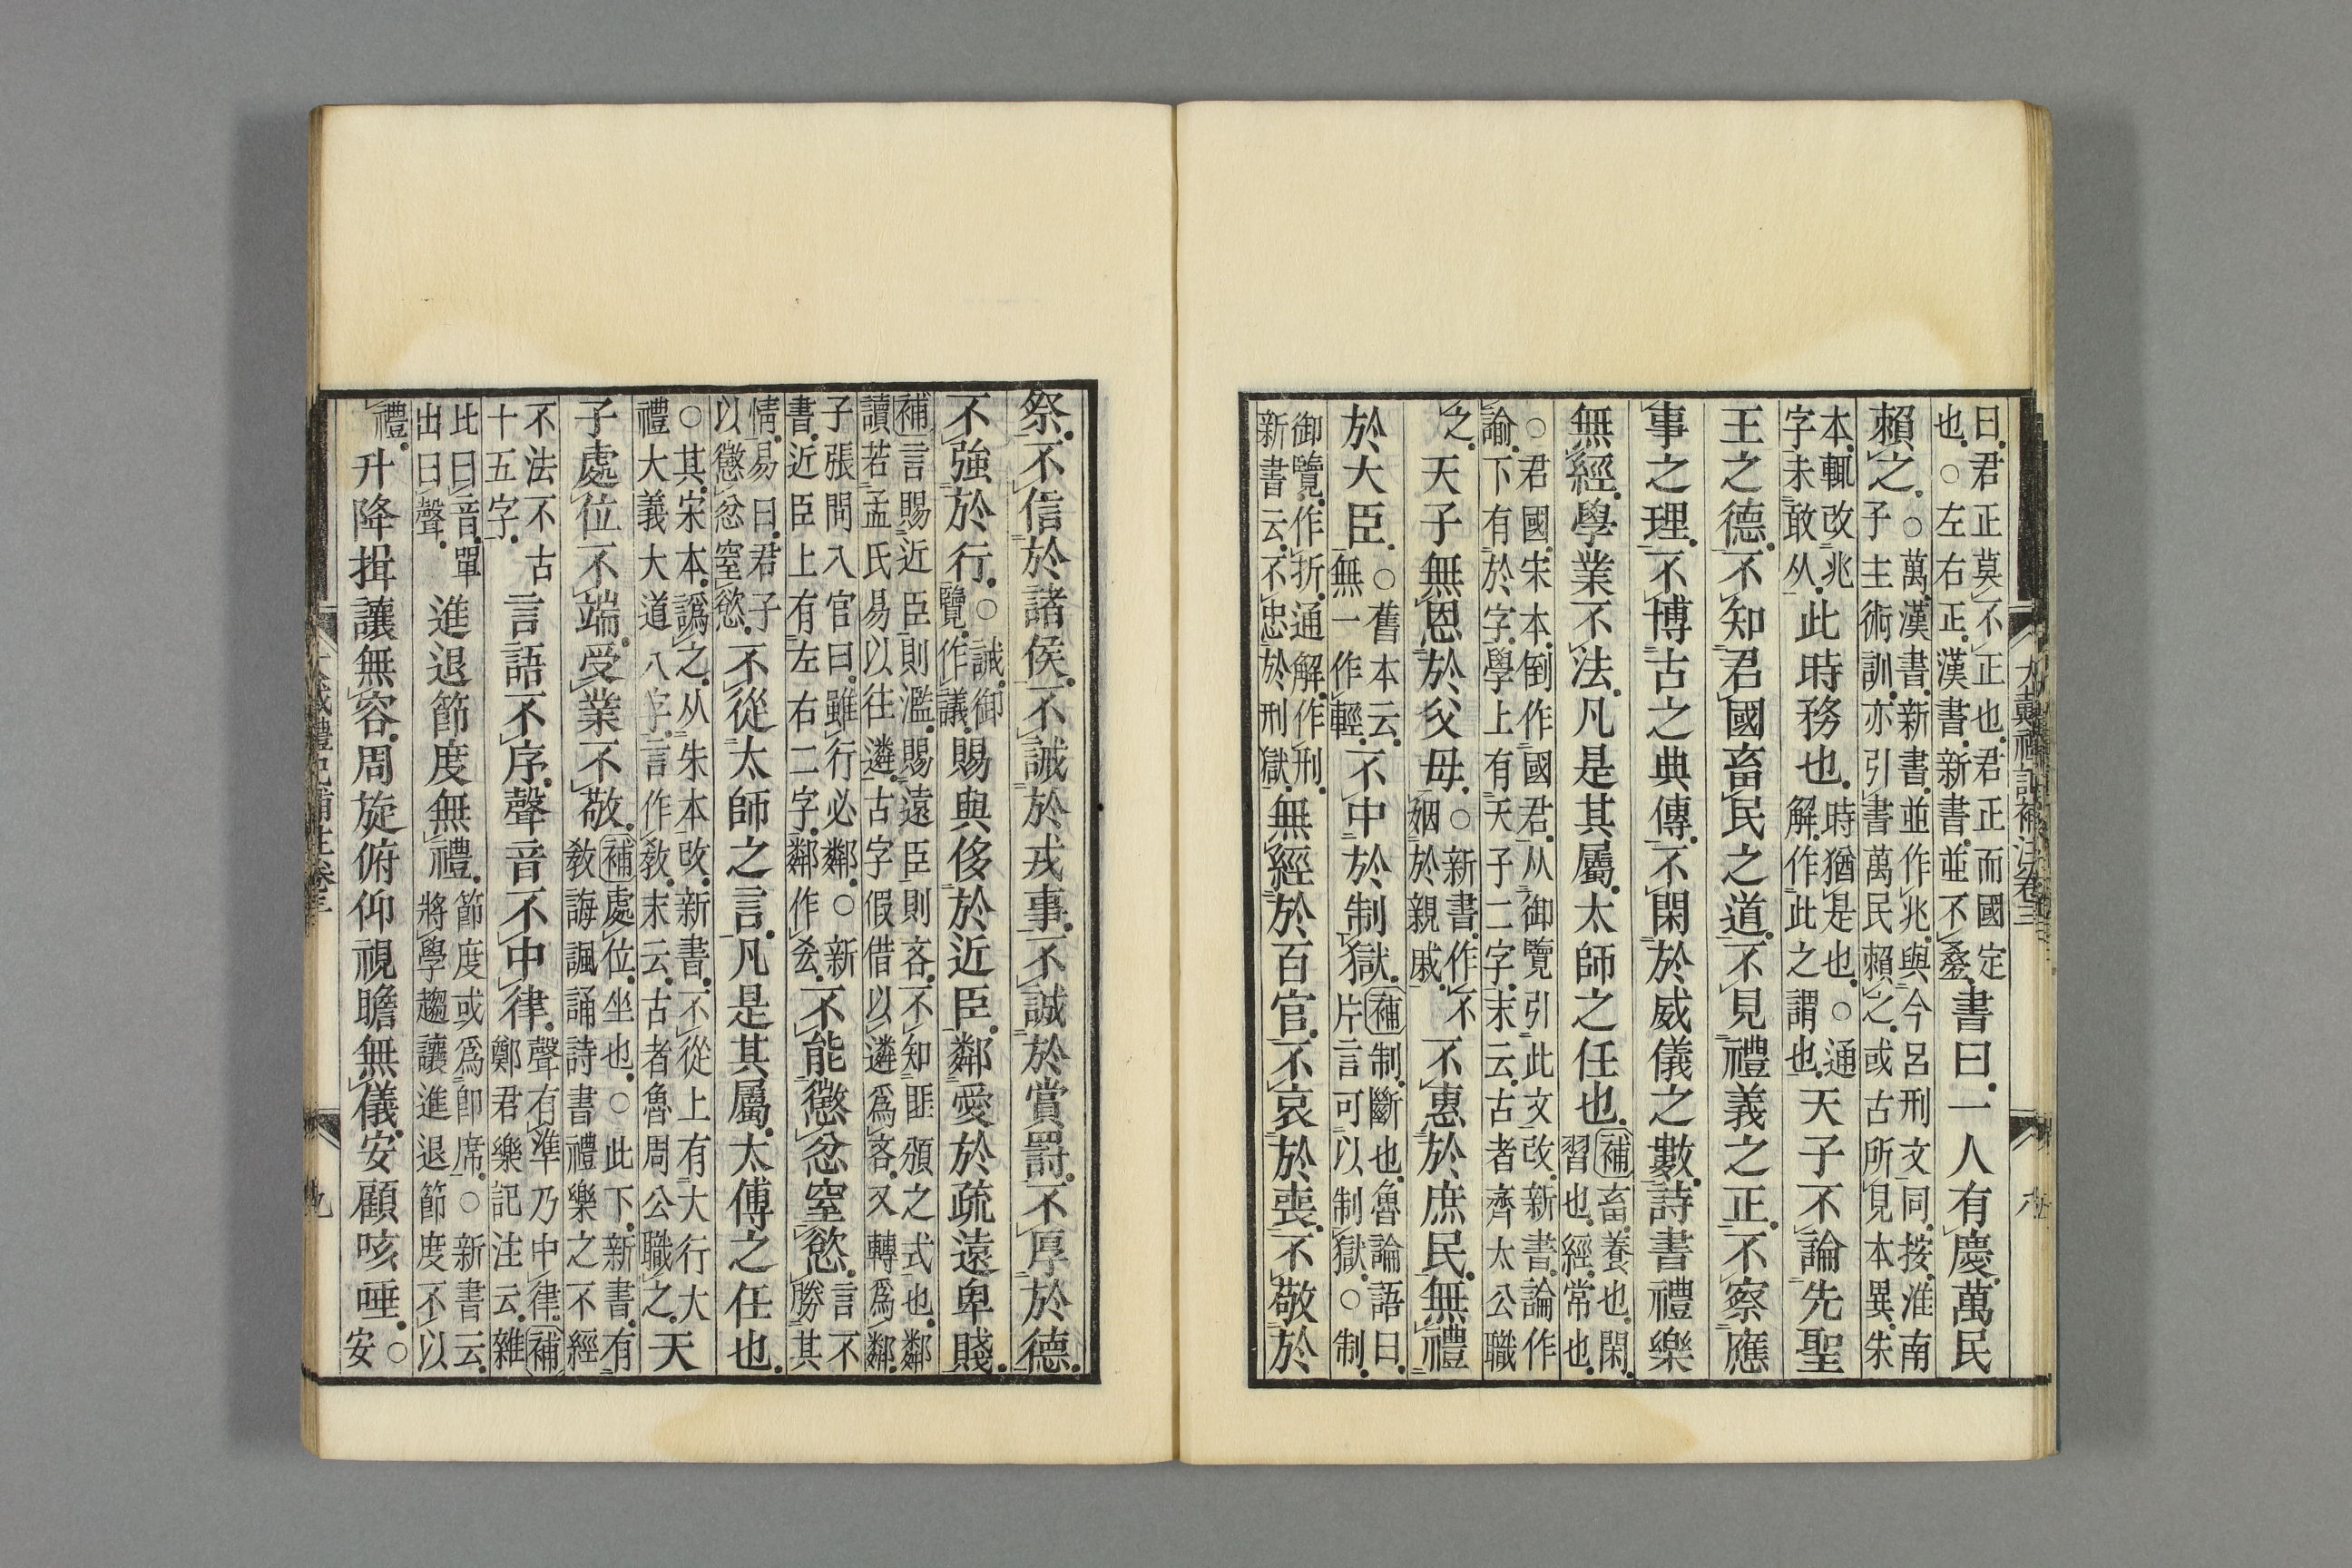 大戴禮記補注卷三
八
曰君正莫不正也君正而國定
也○左右正漢書新書並不叠
書曰一人有慶萬民
賴之
○萬漢書新書並作兆與今呂刑文同按淮南
子主術訓亦引書萬民賴之或古所見本異朱
本輒改兆
字未敢从
此時務也
時猶是也○通
解作此之謂也
天子不論先聖
王之德不知君國畜民之道不見禮義之正不察應
事之理不博古之典傳不閑於威儀之數詩書禮樂
無經學業不法凡是其屬太師之任也
補畜養也閑
習也經常也
○君國宋本倒作國君从御覽引此文改新書論作
諭下有於字學上有天子二字末云古者齊太公職
之
天子無恩於父母
○新書作不
姻於親戚
不惠於庶民無禮
於大臣
○舊本云
無一作輕
不中於制獄
補制斷也魯論語曰
片言可以制獄○制
御覽作折通解作刑
新書云不忠於刑獄
無經於百官不哀於喪不敬於
祭不信於諸侯不誡於戎事不誠於賞罰不厚於德
不強於行
○誡御
覽作議
賜與侈於近臣鄰愛於疏遠卑賤
補言賜近臣則濫賜遠臣則吝不知匪頒之式也鄰
讀若孟氏易以往遴古字假借以遴爲吝又轉爲鄰
子張問入官曰雖行必鄰○新
書近臣上有左右二字鄰作吝
不能懲忿窒慾
言不
勝其
情易曰君子
以懲忿窒慾
不從太師之言凡是其屬太傅之任也
○其宋本譌之从朱本改新書不從上有大行大
禮大義大道八字言作敎末云古者魯周公職之
天
子處位不端受業不敬
補處位坐也○此下新書有
敎誨諷誦詩書禮樂之不經
不法不古
十五字
言語不序聲音不中律
聲有準乃中律補
鄭君樂記注云雜
比曰音單
出曰聲
進退節度無禮
節度或爲卽席○新書云
將學趨讓進退節度不以
禮
升降揖讓無容周旋俯仰視瞻無儀安顧咳唾
○
安
大戴禮記補注卷三
九